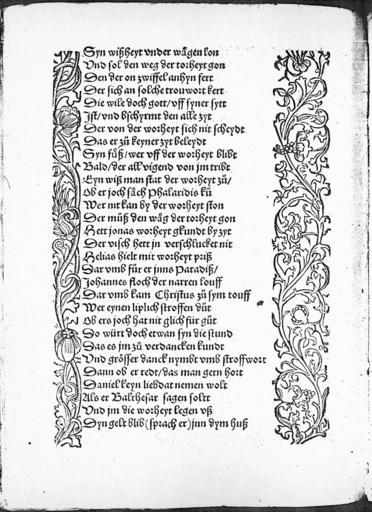 Syn wißheyt vnder wägen lon
Vnd sol den weg der torheyt gon
Den der on zwiffel anhyn fert
Der sich an solche trouwort kert
Die wile doch gott / vff syner sytt
Ist / vnd bschyrmt den alle zyt
Der von der worheyt sich nit scheydt
Das er zů keyner zyt beleydt
Syn fůß / wer vff der worheyt blibt
Bald / der all vigend von jm tribt
Eyn wiß man stat der worheyt zů /
Ob er joch säch Phalaridis ků
Wer nit kan by der worheyt ston
Der můß den wäg der torheyt gon
Hett jonas worheyt gkundt by zyt
Der visch hett jn verschlucket nit
Helias hielt mit worheyt priß
Dar vmb fůr er jnns Paradiß /
Johannes floch der narren louff
Dar vmb kam Christus zů sym touff
Wer eynen liplich stroffen důt
Ob ers joch hat nit glich für gůt
So würt doch etwan syn die stund
Das es jm zů verdancken kundt
Vnd grösser danck nymbt vmb stroffwort
Dann ob er redt / das man gern hort
Daniel keyn liebdat nemen wolt
Als er Balthesar sagen solt
Vnd jm die worheyt legen vß
Dyn gelt blib (sprach er) jnn dym huß